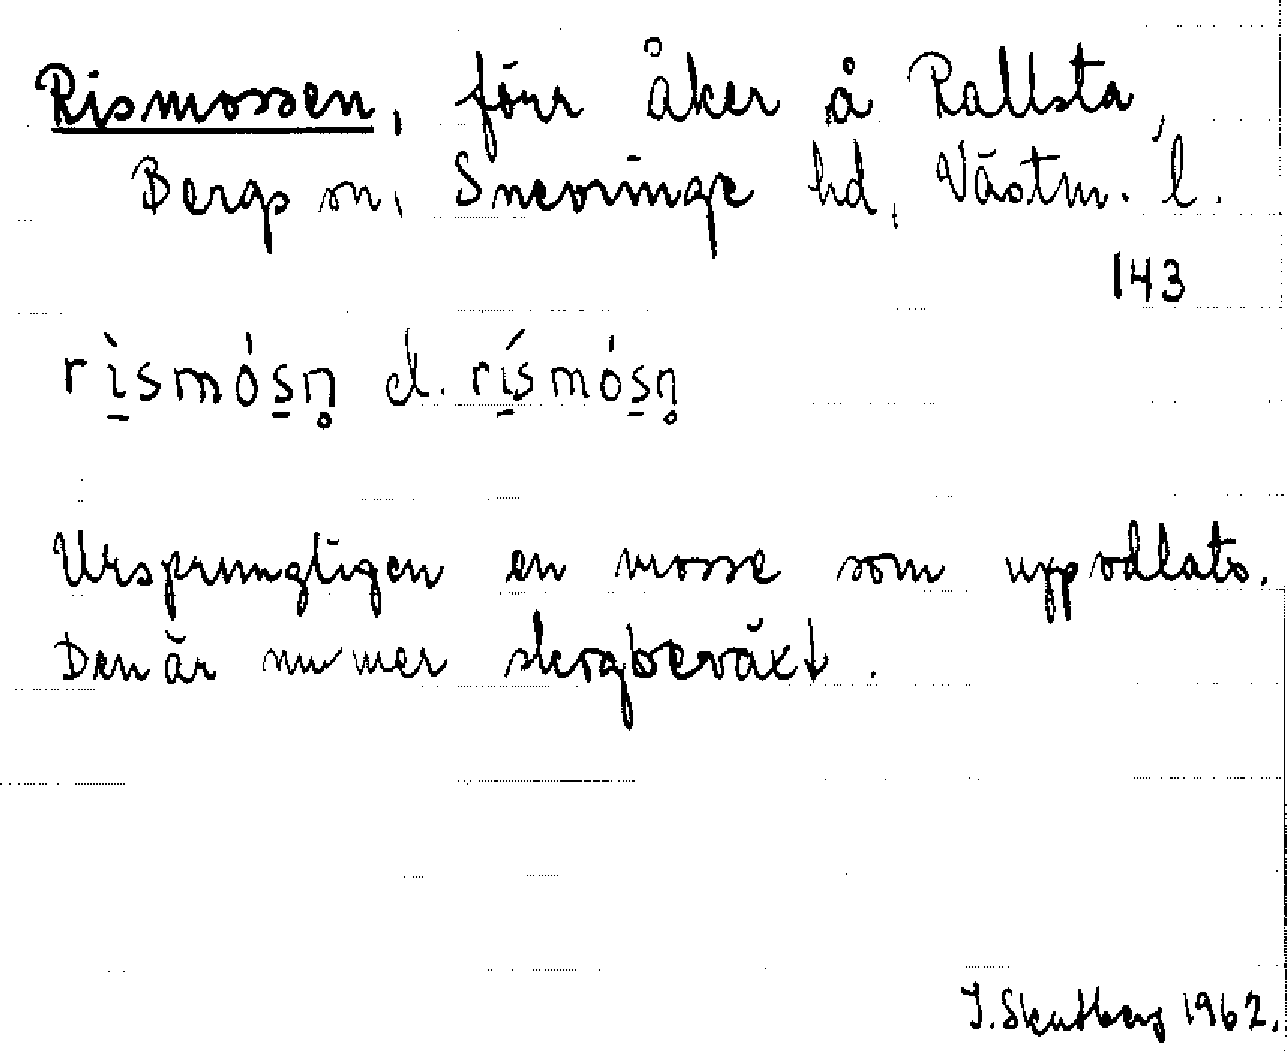 Rismossen, förr åker å Rallsta,
Bergs sn, Snevringe hd, Västm. l.
143
rìsmósn̥ el. rísmósn̥
Ursprungligen en mosse som uppodlats.
Den är numer skogbeväxt.
I. Skutberg 1962.